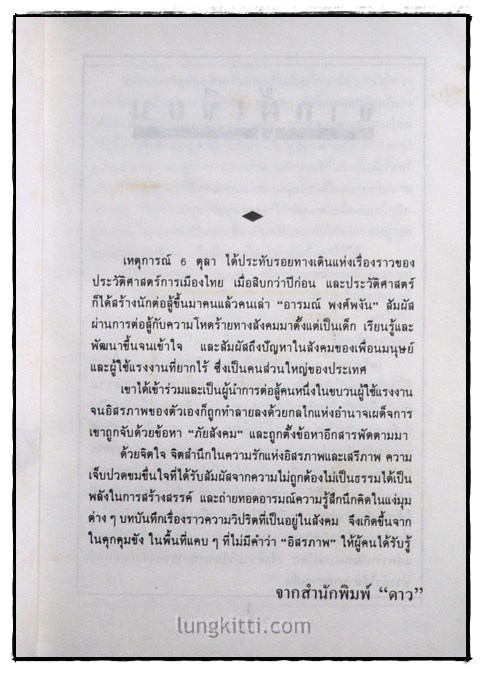 เหตุการณ์ 6 ตุลา ได้ประทับรอยทางเดินแห่งเรื่องราวของ
ประวัติศาสตร์การเมืองไทย เมื่อสิบกว่าปีก่อน และประวัติศาสตร์
ก็ได้สร้างนักต่อสู้ขึ้นมาคนแล้วคนเล่า “อารมณ์ พงศ์พงัน” สัมผัส
ผ่านการต่อสู้กับความโหดร้ายทางสังคมมาตั้งแต่เป็นเด็ก เรียนรู้และ
พัฒนาขึ้นจนเข้าใจ และสัมผัสถึงปัญหาในสังคมของเพื่อนมนุษย์
และผู้ใช้แรงงานที่ยากไร้ ซึ่งเป็นคนส่วนใหญ่ของประเทศ
เขาได้เข้าร่วมและเป็นผู้นำการต่อสู้คนหนึ่งในขบวนผู้ใช้แรงงาน
จนอิสรภาพของตัวเองก็ถูกทำลายลงด้วยกลไกแห่งอำนาจเผด็จการ
เขาถูกจับด้วยข้อหา “ภัยสังคม” และถูกตั้งข้อหาอีกสารพัดตามมา
ด้วยจิตใจ จิตสำนึกในความรักแห่งอิสรภาพและเสรีภาพ ความ
เจ็บปวดขมขื่นใจที่ได้รับสัมผัสจากความไม่ถูกต้องไม่เป็นธรรมได้เป็น
พลังในการสร้างสรรค์ และถ่ายทอดอารมณ์ความรู้สึกนึกคิดในแง่มุม
ต่าง ๆ บทบันทึกเรื่องราวความวิปริตที่เป็นอยู่ในสังคม จึงเกิดขึ้นจาก
ในคุกคุมขัง ในพื้นที่แคบ ๆ ที่ไม่มีคำว่า “อิสรภาพ” ให้ผู้คนได้รับรู้
จากสำนักพิมพ์ “ดาว”
lungkitti.com